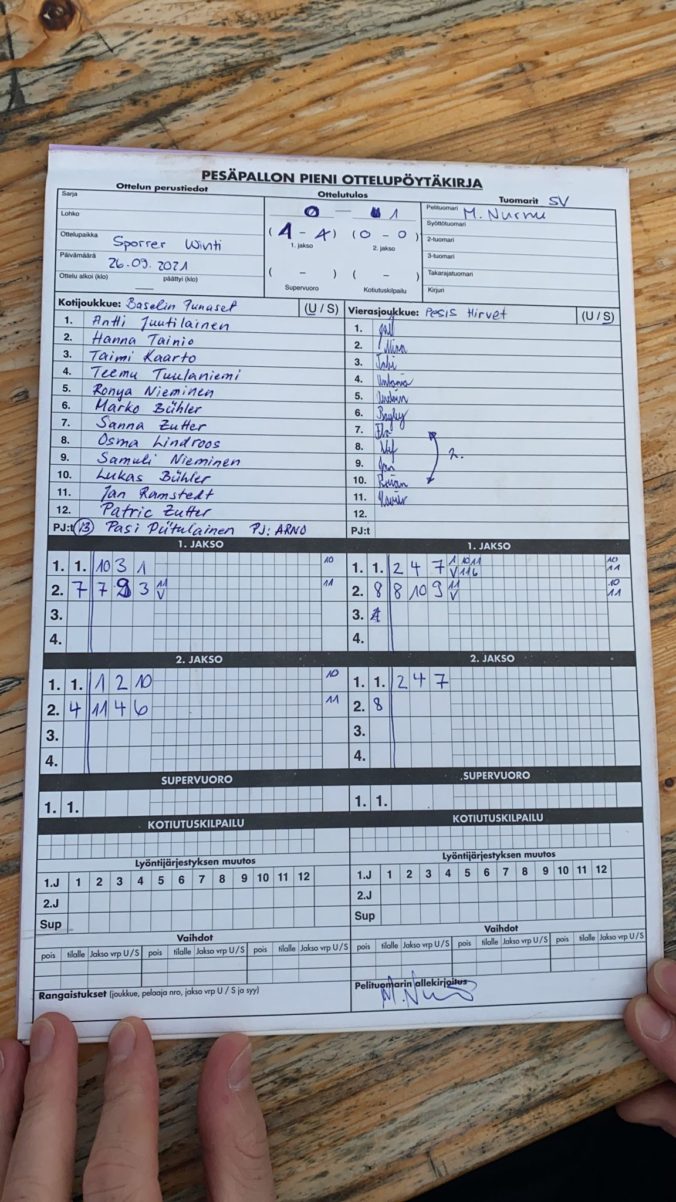 PESÄPALLON PIENI OTTELUPÖYTÄKIRJA
Ottelun perustiedot
Ottelutulos
Tuomarit SV
Sarja
Lohko
Ottelupaikka Sporrer Winti
Päivämäärä 26.09.2021
Ottelu alkoi (klo) päättyi (klo)
0 — 1
(1 - 4) (0 - 0)
1. jakso 2. jakso
( - ) ( - )
Supervuoro Kotiutuskilpailu
Pelituomari M. Nurmi
Syöttötuomari
2-tuomari
3-tuomari
Takarajatuomari
Kirjuri
Kotijoukkue: Baselin Punaset (U / S)
1. Antti Juutilainen
2. Hanna Tainio
3. Taimi Kaarto
4. Teemu Tuulaniemi
5. Ronya Nieminen
6. Marko Bühler
7. Sanna Zutter
8. Osma Lindroos
9. Samuli Nieminen
10. Lukas Bühler
11. Jan Ramstedt
12. Patric Zutter
PJ:t 13 Pasi Piitulainen PJ: ARNO
Vierasjoukkue: Pesis Hirvet (U / S)
1.
2.
3.
4.
5.
6.
7.
8.
9.
10.
11.
12.
2.
PJ:t
1. JAKSO
1. 1. 10 3 1 10
2. 7 7 9 3 11 V 11
3.
4.
1. JAKSO
1. 1. 2 4 7 10 11
2. 8 8 10 9 11 V 10 11
3.
4.
2. JAKSO
1. 1. 1 2 10 10
2. 4 11 4 6 11
3.
4.
2. JAKSO
1. 1. 2 4 7
2. 8
3.
4.
SUPERVUORO
1. 1.
SUPERVUORO
1. 1.
KOTIUTUSKILPAILU
KOTIUTUSKILPAILU
Lyöntijärjestyksen muutos
1.J 1 2 3 4 5 6 7 8 9 10 11 12
2.J
Sup
Lyöntijärjestyksen muutos
1.J 1 2 3 4 5 6 7 8 9 10 11 12
2.J
Sup
Vaihdot
pois tilalle Jakso vrp U / S pois tilalle Jakso vrp U / S pois tilalle Jakso vrp U / S
Vaihdot
pois tilalle Jakso vrp U / S pois tilalle Jakso vrp U / S pois tilalle Jakso vrp U / S
Rangaistukset (joukkue, pelaaja nro, jakso vrp U / S ja syy)
Pelituomarin allekirjoitus